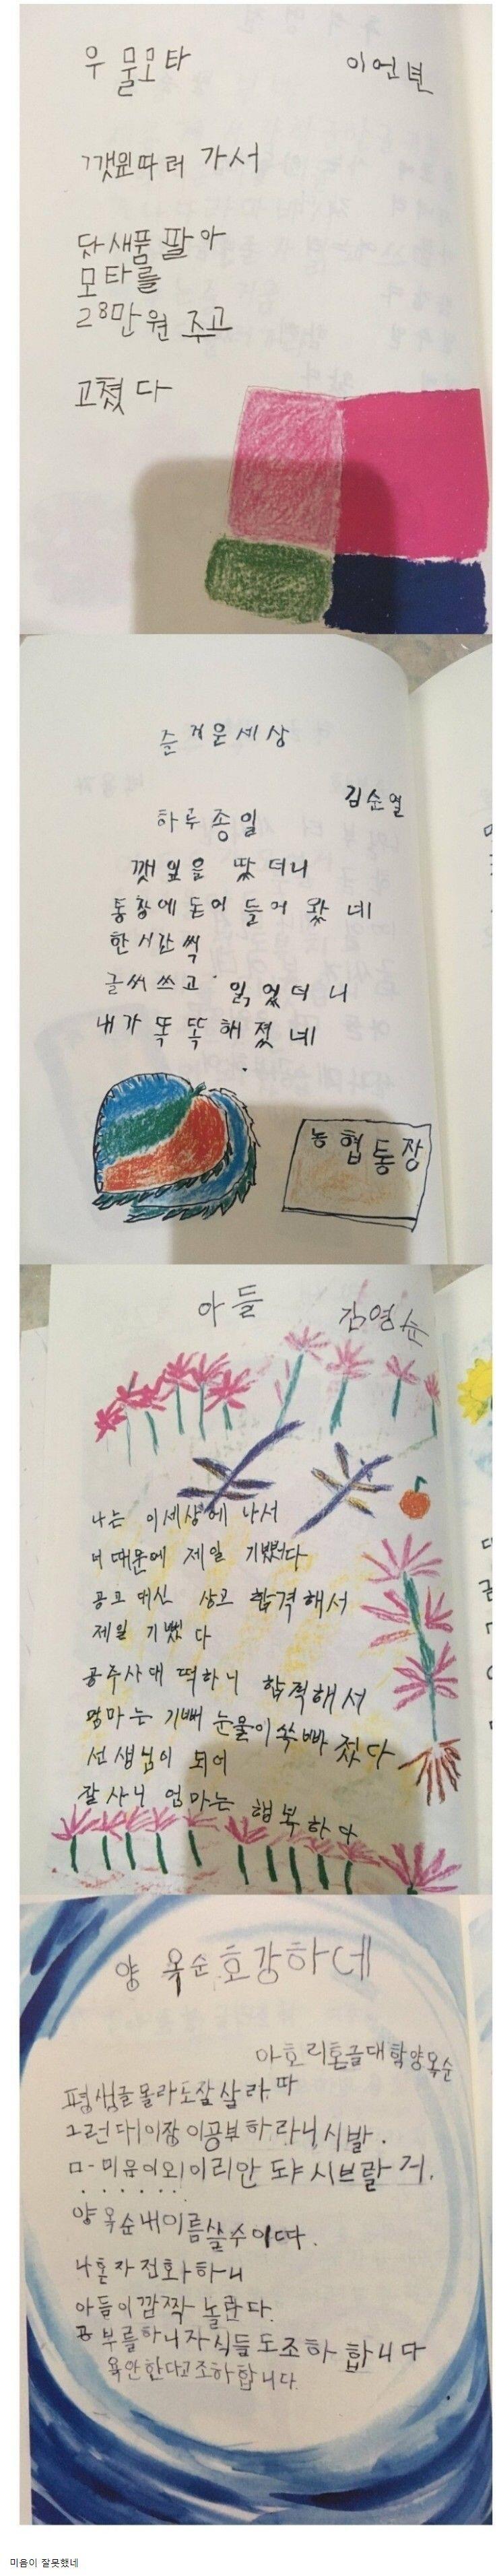 우물모타
이언년
깻잎따러 가서
닷새품팔아
모타를
28만원 주고
고쳤다
즐거운세상
김순열
하루종일
깻잎을 땄더니
통장에 돈이 들어 왔네
한시간씩
글씨쓰고 읽었더니
내가 똑똑해졌네
농협통장
아들
김영순
나는 이세상에 나서
너때문에 제일 기뻤다
공고대신 상고 합격해서
제일 기뻤다
공주사대 떡하니 합격해서
엄마는 기뻐 눈물이쏙빠젔다
선생님이 되어
잘사니 엄마는 행복하다
양옥순호강하네
아호리혼글대학양옥순
평생글몰라도잘살라따
그런대이장이공부하라니시발.
ㅁ-미음이외이리안도야시브랄거.
양옥순내이름쓸수이따.
나혼자전화하니
아들이깜짝놀란다.
공부를하니자식들도조하합니다
욕안한다고조하합니다.
미음이 잘못했네